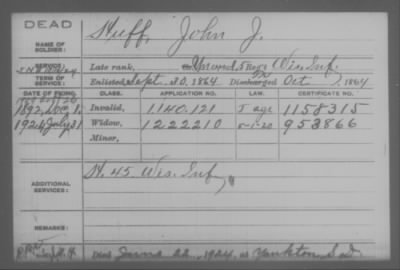 DEAD
NAME OF SOLDIER: Huff, John J.
SERVICE: Late rank, 5 Reg't Wis. Inf.
TERM OF SERVICE: Enlisted Sept. 30, 1864 Discharged Oct 1864
DATE OF FILING. CLASS. APPLICATION NO. LAW. CERTIFICATE NO.
1892, Invalid, 1.140.121 age 1158315
1924 July 31 Widow, 1222210 5-1-20 953866
Minor,
ADDITIONAL SERVICES: 45 Wis. Inf.
REMARKS:
Died June 22, 1924, at Yankton, S.d.